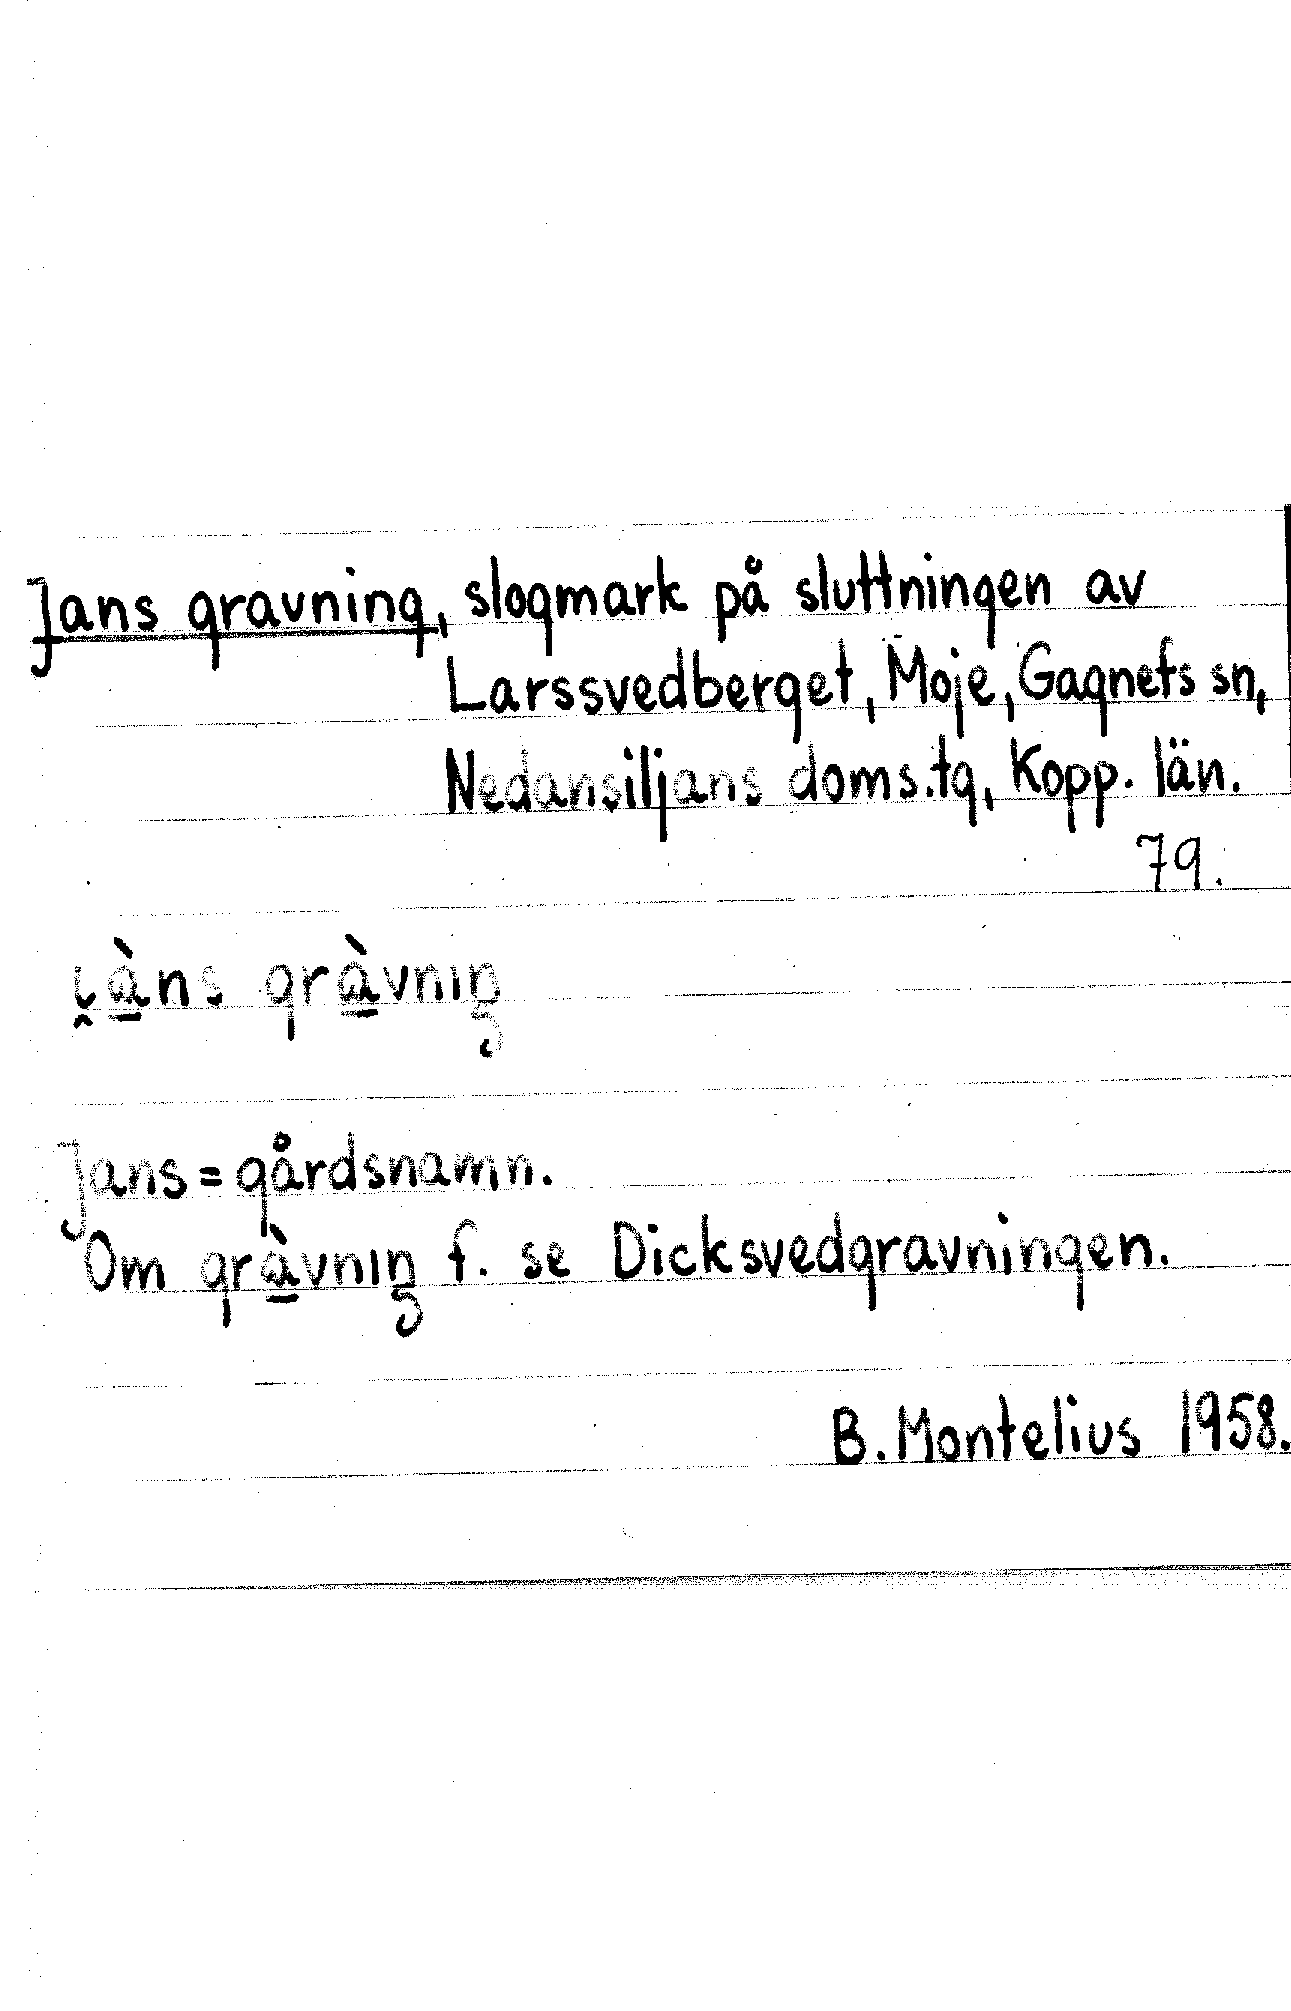 Jans gravning, slogmark på sluttningen av
Larssvedberget, Moje, Gagnefs sn,
Nedansiljans doms.tg, Kopp. län.
79.
i̯à̱ns grà̱vnıŋ
Jans = gårdsnamn.
Om grà̱vnıŋ f. se Dicksvedgravningen.
B. Montelius 1958.